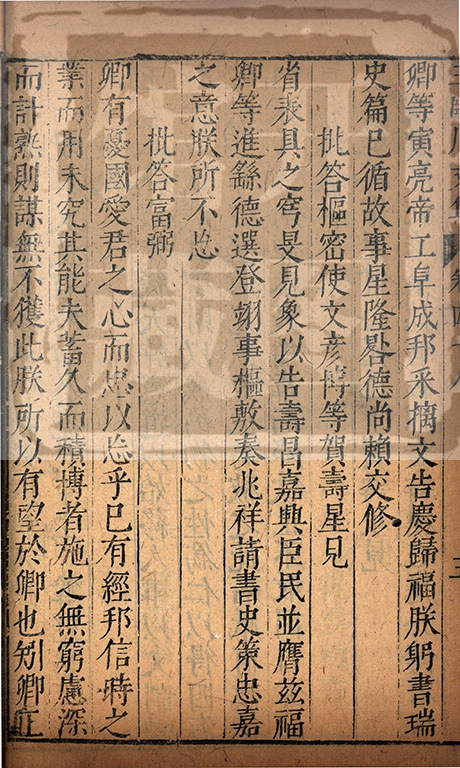 卿等寅亮帝工阜成邦采摛文告慶歸福朕躬書瑞
史篇已循故事星隆畧德尚賴交修
批答樞密使文彥博等賀壽星見
省表具之穹旻見象以告壽昌嘉與臣民並膺茲福
卿等進繇德選登翊事樞敷奏兆祥請書史策忠嘉
之意朕所不忘
批答富弼
卿有憂國愛君之心而忠以忘乎已有經邦信時之
業而用未究其能夫蓄久而積博者施之無窮慮深
而計熟則謀無不獲此朕所以有望於卿也矧卿在